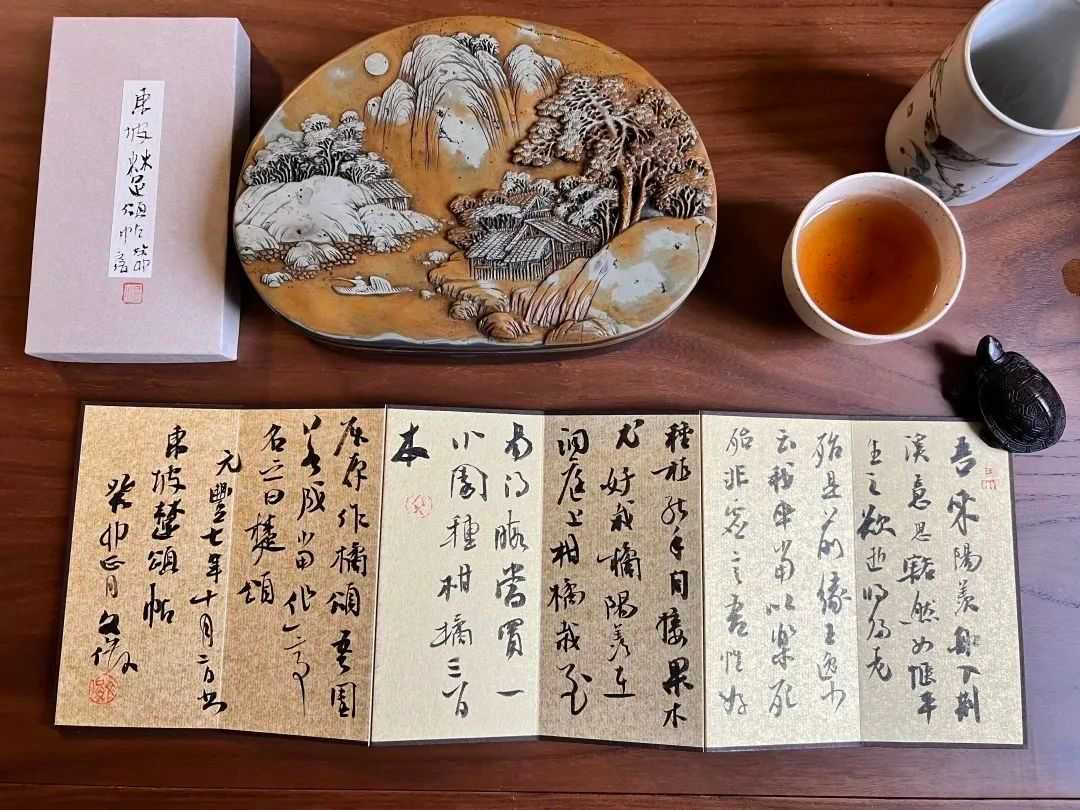 東坡楚頌帖 癸卯
吾來陽羨船入荊
溪意思豁然如愜平
生之欲逝將歸老
殆是前緣王逸少
云我卒當以樂死
殆非虛言吾性好
種植能手自接果木
尤好栽橘陽羨在
洞庭上柑橘栽至
易得暇當買一
小園種柑橘三百
本
屈原作橘頌吾園
若成當作一亭
名之曰楚頌
元豐七年十月二日書
東坡楚頌帖
癸卯正月文